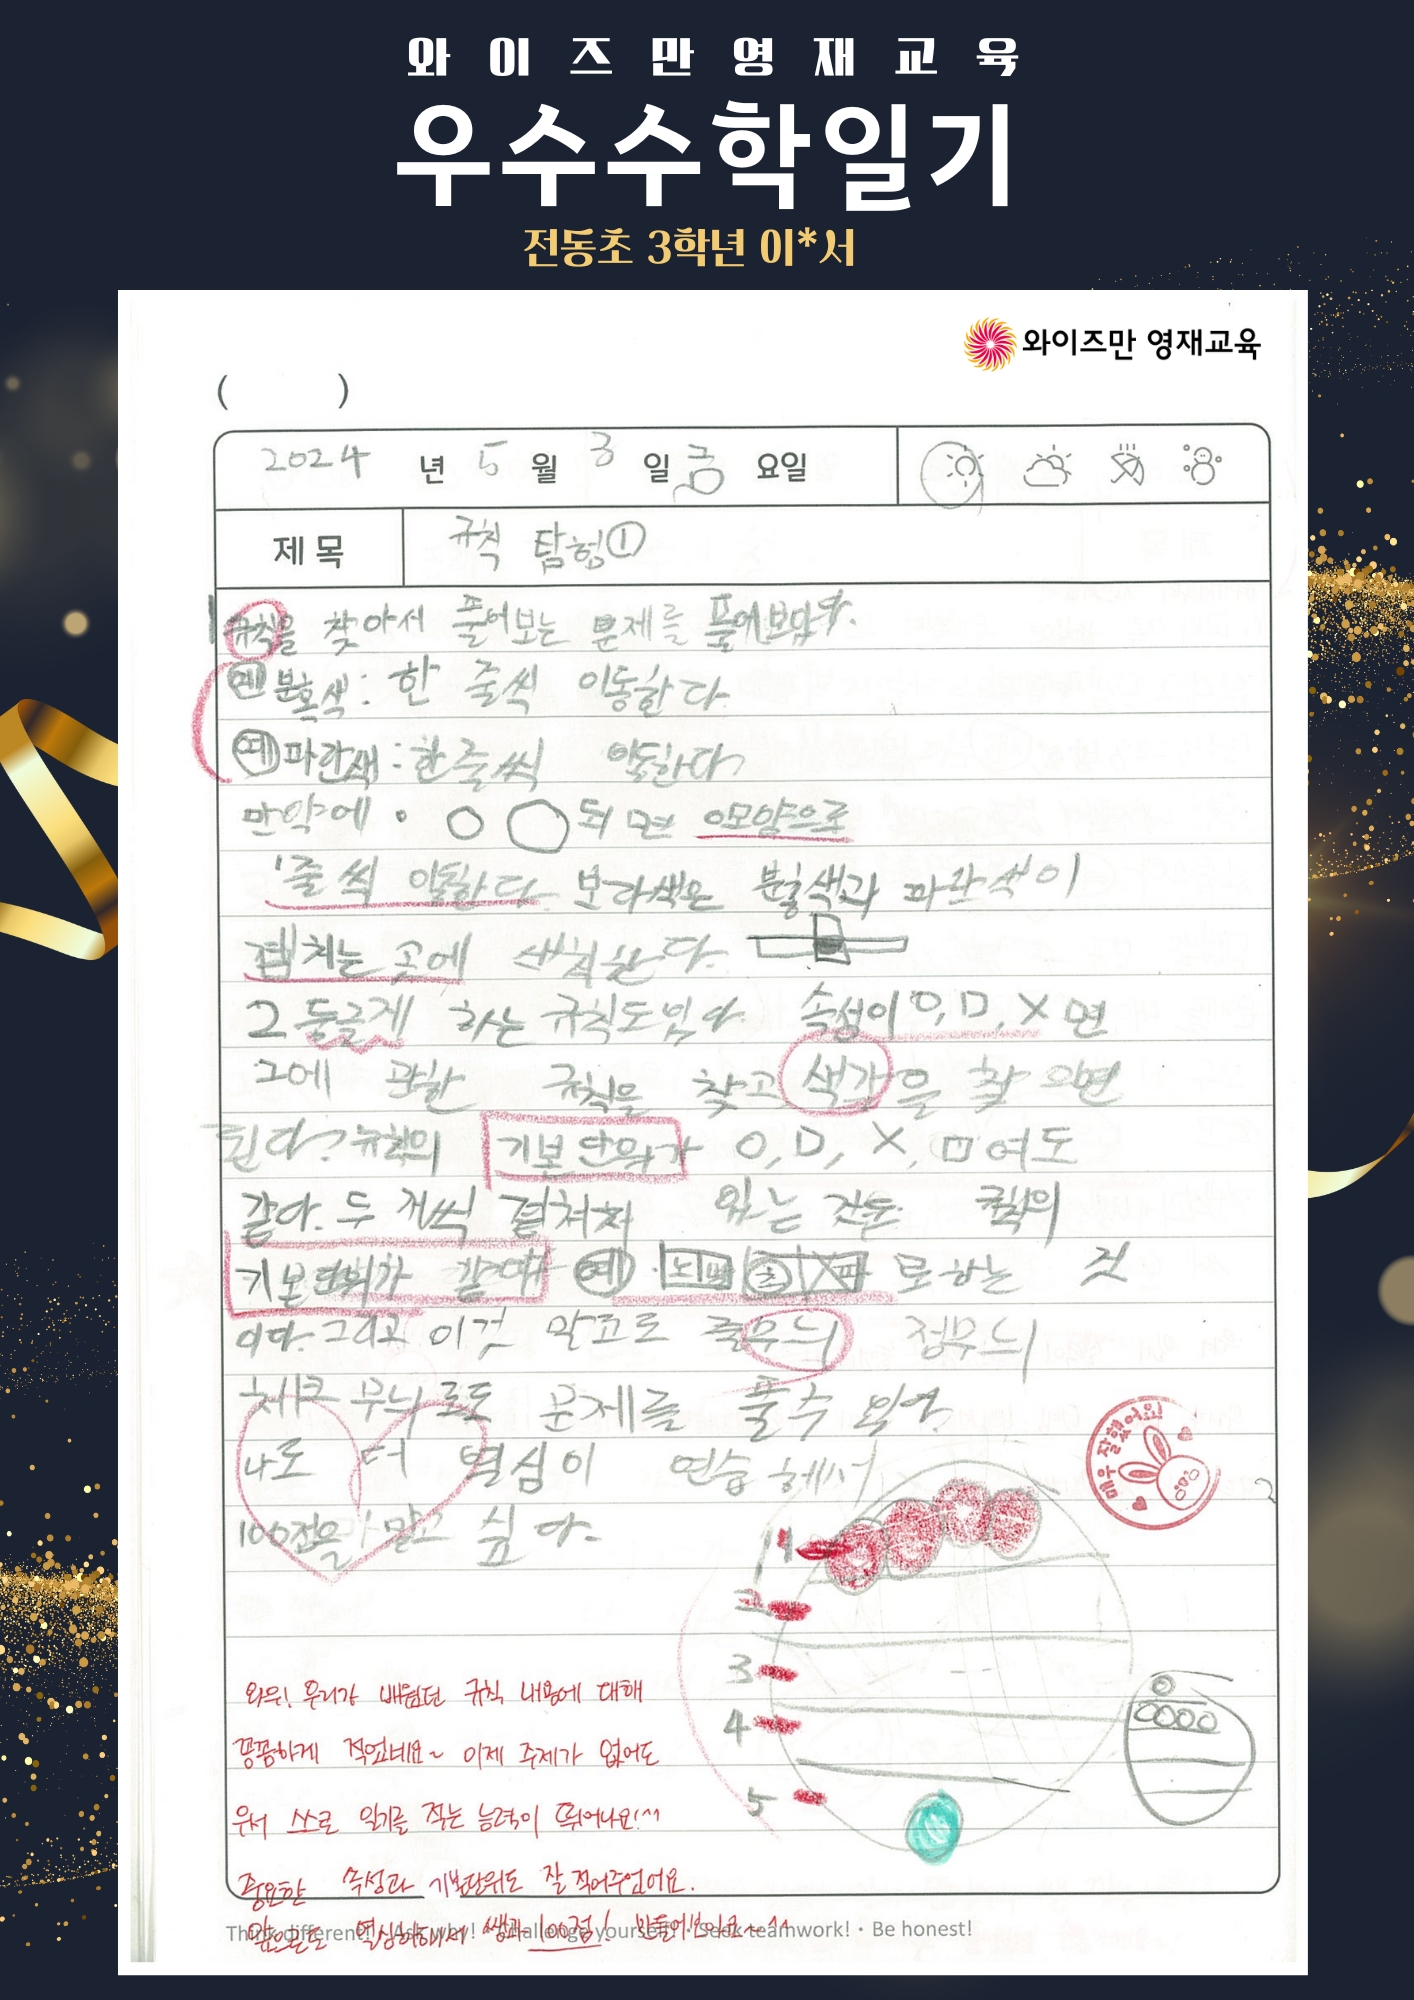 와이즈만영재교육
우수수학일기
전동초 3학년 이*서
와이즈만 영재교육
( )
2024 년 5 월 3 일 금 요일
제 목 규칙 탐험①
규칙을 찾아서 풀어보는 문제를 풀어보았다.
예 분혹색 : 한 줄씩 이동한다.
예 파란색 : 한 줄씩 이동한다.
만약에 · ○ ○ 되면 이모양으로
1줄씩 이동한다. 보라색은 분홍색과 파란색이
겹치는 곳에 색칠한다.
그 둥글게 하는 규칙도 있다. 속성이 ○, □, X 면
그에 관한 규칙을 찾고 색감을 찾으면
된다. 규칙의 기본단위가 ○, □, X, ㅁ여도
같아. 두 개씩 겹쳐져 있는 것도 규칙의
기본단위가 같아 예 로 하는 것
이다. 그리고 이것 말고로 줄무늬 점무늬
체크 무늬로도 문제를 풀수 있어.
나도 더 열심이 연습 해서
100전을 맞고 싶다.
1
2
3
4
5
매우 잘했어요!
와우! 우리가 배웠던 규칙 내용에 대해
꼼꼼하게 적었네요~ 이제 주제가 없어도
우서 스스로 일기를 적는 능력이 뛰어나요!^^
중요한 속성과 기본단위도 잘 적어주었어요.
앞으로도 열심히해서 쌤과 100점! 만들어보아요~^^
Think different! · Ask why! · Challenge yourself! · Seek teamwork! · Be honest!